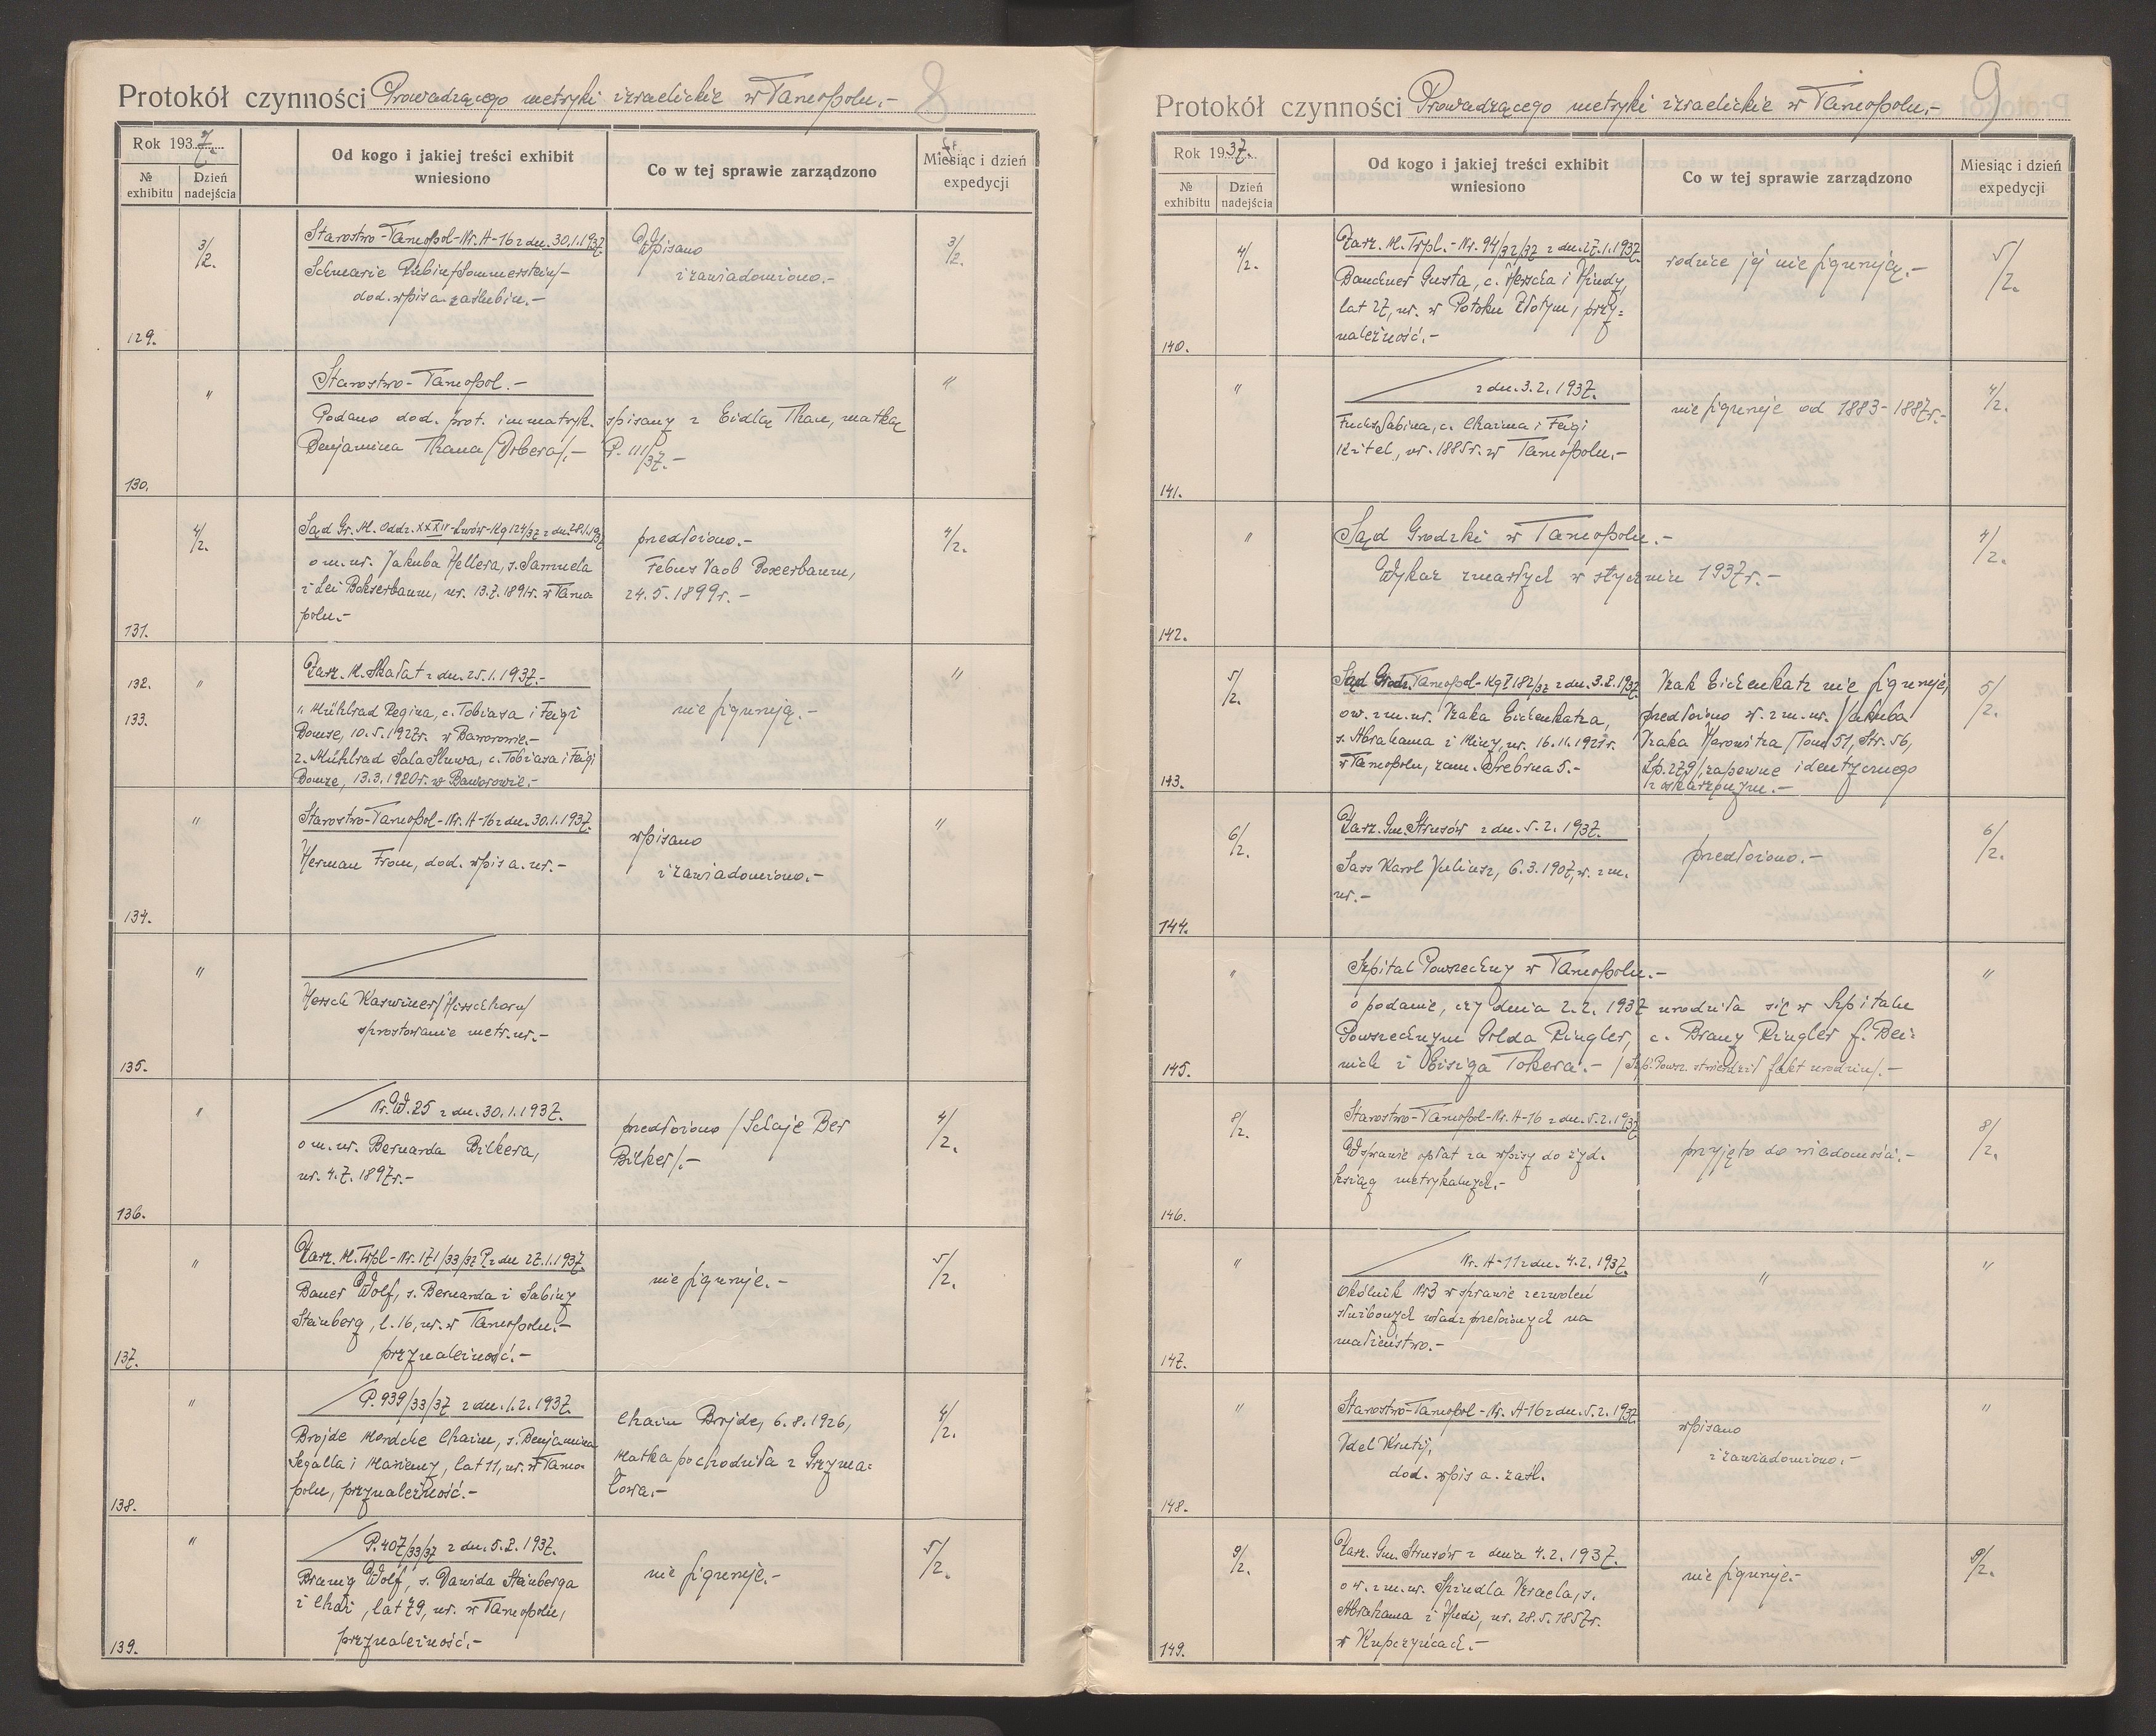 Protokół czynności Prowadzącego metryki izraelickie w Tarnopolu.- 8
Rok 1937.
№ exhibitu
Dzień nadejścia
Od kogo i jakiej treści exhibit wniesiono
Co w tej sprawie zarządzono
Miesiąc i dzień expedycji
129.
3/2.
Starostwo-Tarnopol-Nr. A-16 z dn. 30.1.1937.
Schmarie Rubin/Sommerstein/-
dod. wpis a. zaślubin.-
Wpisano
i zawiadomiono.-
3/2.
130.
"
Starostwo-Tarnopol.-
Podano dod. prot. immatryk. spisany z Eidlą Tkau, matką
Benjamina Tkaua/Dobera/.- P. 111/37.-
"
131.
4/2.
Sąd Gr. M. Oddz. XXXIV-Lwów-Kg 124/37 z dn. 28.1.1937
o m. ur. Jakuba Hellera, s. Samuela
i Lei Bokserbaum, ur. 13.7.1891r. w Tarno-
polu.-
przedłożono.-
Febus Jacob Boxerbaum,
24.5.1899r.-
4/2.
132.
133.
"
Zarz. M. Skałat z dn. 25.1.1937.-
1. Mühlrad Regina, c. Tobiasa i Feigi
Bomse, 10.5.1927r. w Baworowie.-
2. Mühlrad Sala Sluwa, c. Tobiasa i Feigi
Bomze, 13.3.1920r. w Baworowie.-
nie figurują.-
"
134.
"
Starostwo-Tarnopol-Nr. A-16 z dn. 30.1.1937.
Herman From, dod. wpis a. ur.-
wpisano
i zawiadomiono.-
"
135.
"
Hersch Karwiner/Hirschhorn/
sprostowanie metr. ur.-
136.
"
Nr. W. 25 z dn. 30.1.1937.
o m. ur. Bernarda Bilkera,
ur. 4.7.1897r.-
przedłożono /Schaje Ber
Bilker/.-
4/2.
137.
"
Zarz. M. Trpl-Nr. 171/33/37 P. z dn 27.1.1937.
Bauer Wolf, s. Bernarda i Sabiny
Steinberg, l. 16, ur. w Tarnopolu.-
przynależność.-
nie figuruje.-
5/2.
138.
"
P. 939/33/37 z dn. 1.2.1937.
Brojde Mordche Chaim, s. Benjamina
Segalla i Marjemy, lat 11, ur. w Tarno-
polu, przynależność.-
Chaim Brojde, 6.8.1926,
Matka pochodziła z Grzyma-
łowa.-
4/2.
139.
"
P. 407/33/37 z dn. 5.2.1937.
Braunig Wolf, s. Dawida Steinberga
i Chai, lat 79, ur. w Tarnopolu,
przynależność.-
nie figuruje.-
5/2.
Protokół czynności Prowadzącego metryki izraelickie w Tarnopolu.- 9
Rok 1937.
№ exhibitu
Dzień nadejścia
Od kogo i jakiej treści exhibit wniesiono
Co w tej sprawie zarządzono
Miesiąc i dzień expedycji
140.
4/2.
Zarz. M. Trpl.-Nr. 94/32/37 z dn. 27.1.1937.
Bauchner Gusta, c. Herscha i Hindy,
lat 27, ur. w Potoku Złotym, przy-
należność.-
rodzice jej nie figurują.-
5/2.
141.
"
z dn. 3.2.1937.
Fuchs Sabina, c. Chaima i Feigi
Kitel, ur. 1885r. w Tarnopolu.-
nie figuruje od 1883-1887r.-
4/2.
142.
"
Sąd Grodzki w Tarnopolu.-
Wykaz zmarłych w styczniu 1937r.-
4/2.
143.
5/2.
Sąd Grodz. Tarnopol-Kg I 182/37 z dn. 3.2.1937.
o w. z m. ur. Izaka Eichenkatza,
s. Abrahama i Miny, ur. 16.11.1921r.
w Tarnopolu, zam. Srebrna 5.-
Izak Eichenkatz nie figuruje,
przedłożono w. z m. ur. Jakuba
Izaka Horowitza /Tom 51, Str. 56,
Lp. 279/, zapewne identycznego
z oskarżonym.-
5/2.
144.
6/2.
Zarz. Gm. Strusów z dn. 5.2.1937.
Sass Karol Juliusz, 6.3.1907, w. z m.
ur.-
przedłożono.-
6/2.
145.
"
Szpital Powszechny w Tarnopolu.-
o podanie, czy dnia 2.2.1937 urodziła się w Szpitalu
Powszechnym Golda Ringler, c. Brany Ringler f. Bei-
nich i Eisiga Tokera.- /Szp. Powsz. stwierdził fakt urodzin/.-
"
146.
8/2.
Starostwo-Tarnopol-Nr. A-16 z dn. 5.2.1937
W sprawie opłat za wpisy do żyd.
ksiąg metrykalnych.-
przyjęto do wiadomości.-
8/2.
147.
"
Nr. A-11 z dn. 4.2.1937.
Okólnik Nr3 w sprawie zezwoleń
służbowych władz przełożonych na
małżeństwo.-
"
"
148.
"
Starostwo-Tarnopol-Nr. A-16 z dn. 5.2.1937
Idel Krutij,
dod. wpis a. zaśl.
wpisano
i zawiadomiono.-
"
149.
9/2.
Zarz. Gm. Strusów z dnia 4.2.1937.
o w. z m. ur. Spindla Izraela, s.
Abrahama i Hudi, ur. 28.5.1857r.
w Kupczyńcach.-
nie figuruje.-
9/2.